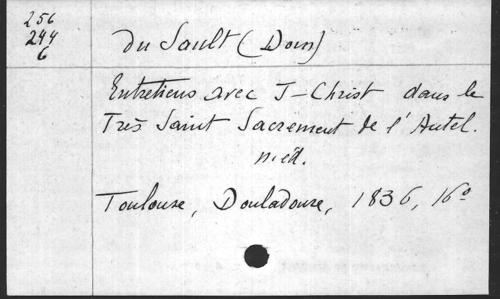 256
244
6
du Sault (Dom)
Entretiens avec J-Christ dans le
Très Saint Sacrement de l'Autel.
n. éd.
Toulouse, Douladoure, 1836, 16º